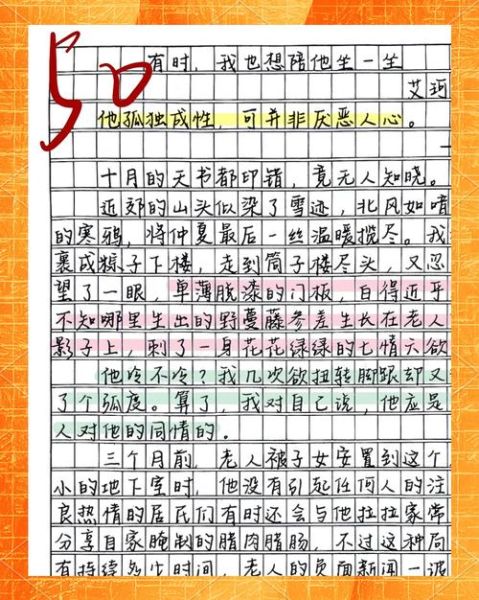 50
有时，我也想陪他坐一坐
艾珂
他孤独成性，可并非厌恶人心。
一
十月的天书都印错，竟无人知晓。
近郊的山头似染了雪迹，北风如喑
的寒鸦，将仲夏最后一丝温暖揽尽。我
裹成粽子下楼，走到筒子楼尽头，又忍
望了一眼，单薄脱漆的门板，白得近乎
不知哪里生出的野蔓藤参差生长在老人
影子上，刺了一身花花绿绿的七情六欲
他冷不冷？我几次欲扭转脚跟却又
了个弧度。算了，我对自己说，他应是
人对他的同情的。
三个月前，老人被子女安置到这个
小的地下室时，他没有引起任何人的注
良热情的居民们有时还会与他拉拉家常
分享自家腌制的腊肉腊肠，不过这种局
有持续多少时间，老人的负面新闻一